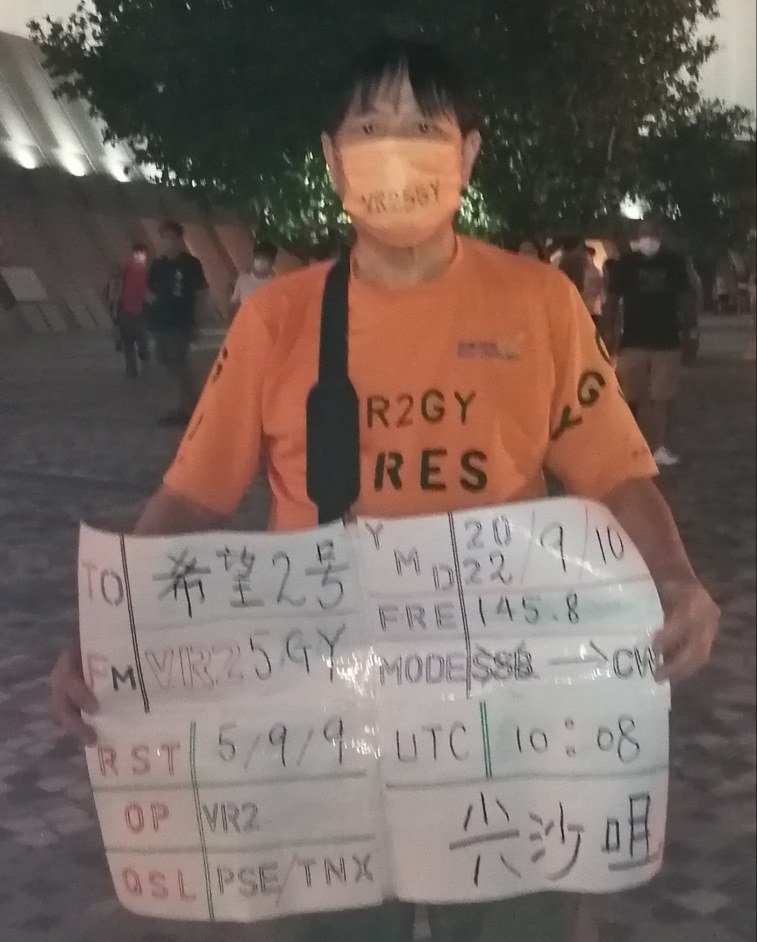 VR25GY
R2GY
RES
GY
TO 希望2号
FM VR25GY
RST 5/9/9
OP VR2
QSL PSE/TNX
Y M D 2022/9/10
FRE 145.8
MODE SSB → CW
UTC 10:08
尖沙咀